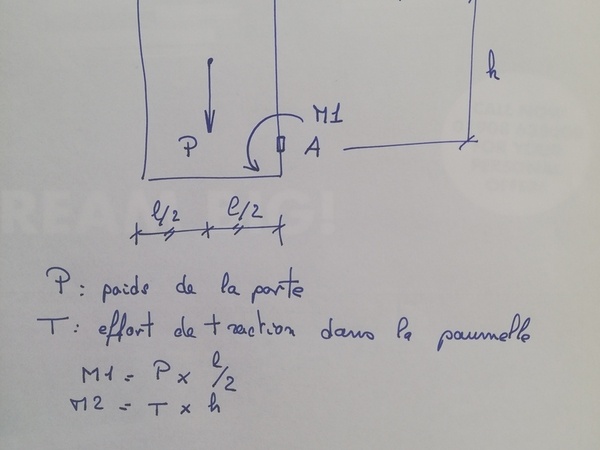 h
M1
P
A
l/2
l/2
P: poids de la porte
T: effort de traction dans la paumelle
M1 = P x l/2
M2 = T x h